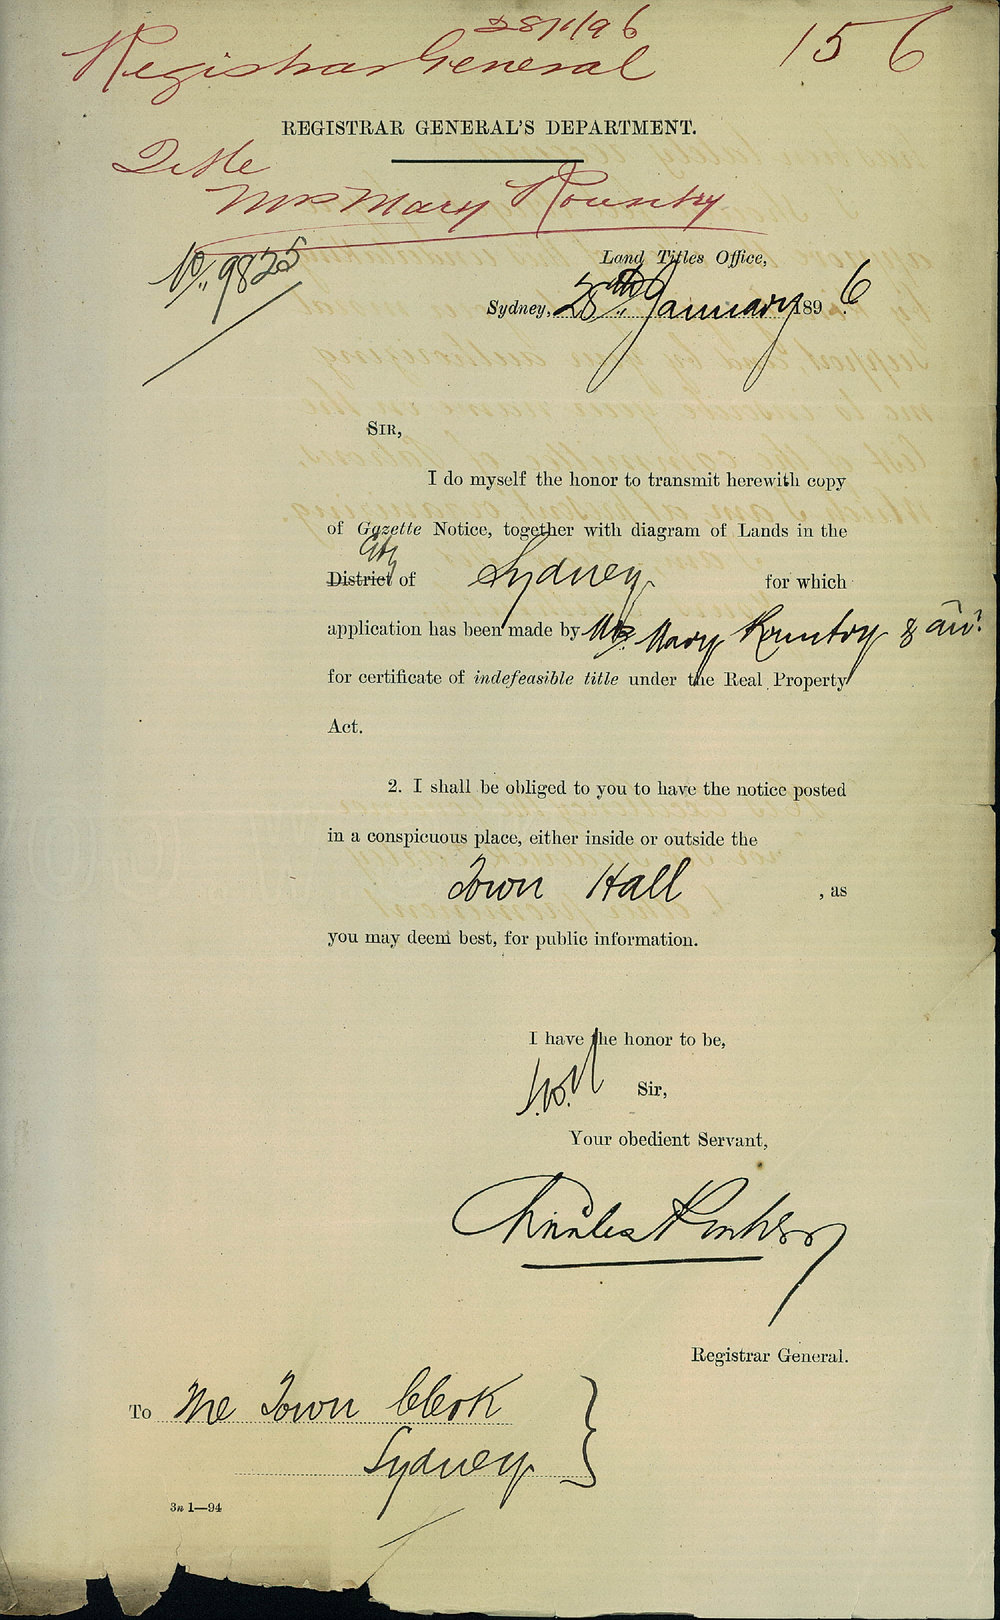 28/1/96
Registrar General 156
REGISTRAR GENERAL'S DEPARTMENT.
Title
Mrs Mary Rountry
No. 9825
Land Titles Office,
Sydney, 28th January 1896
SIR,
I do myself the honor to transmit herewith copy
of Gazette Notice, together with diagram of Lands in the
City
District of Sydney for which
application has been made by Mrs. Mary Rountry & anr.
for certificate of indefeasible title under the Real Property
Act.
2. I shall be obliged to you to have the notice posted
in a conspicuous place, either inside or outside the
Town Hall , as
you may deem best, for public information.
I have the honor to be,
Sir,
Your obedient Servant,
Charles
Registrar General.
To The Town Clerk
Sydney
3n 1—94